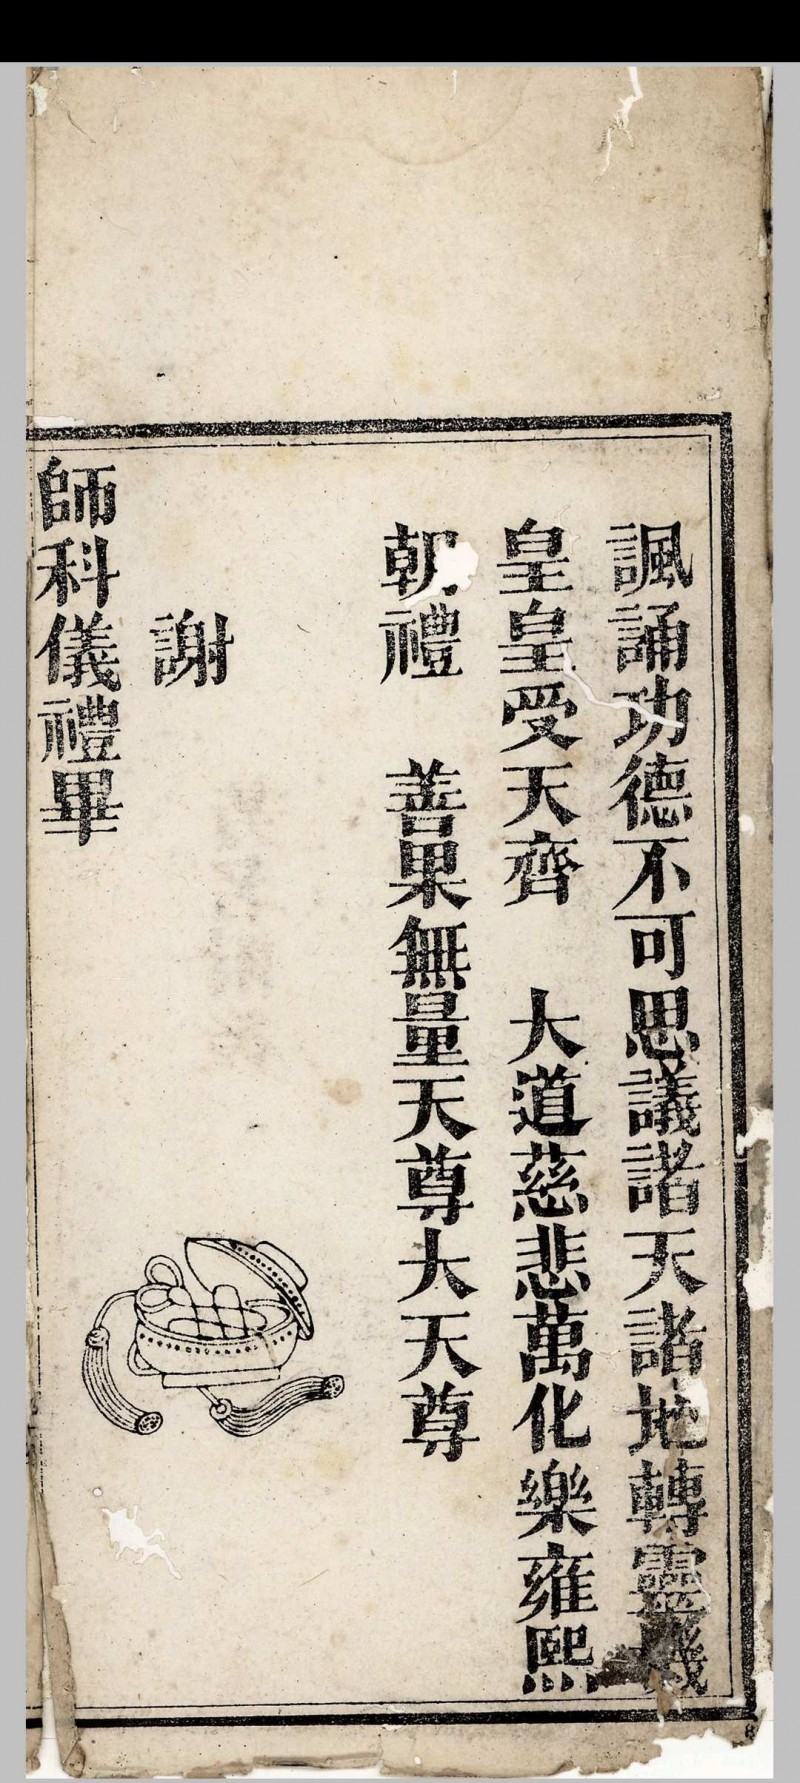 諷誦功德不可思議諸天諸地轉靈機
皇皇受天齊　大道慈悲萬化樂雍熙
朝禮　善果無量天尊大天尊
謝
師科儀禮畢